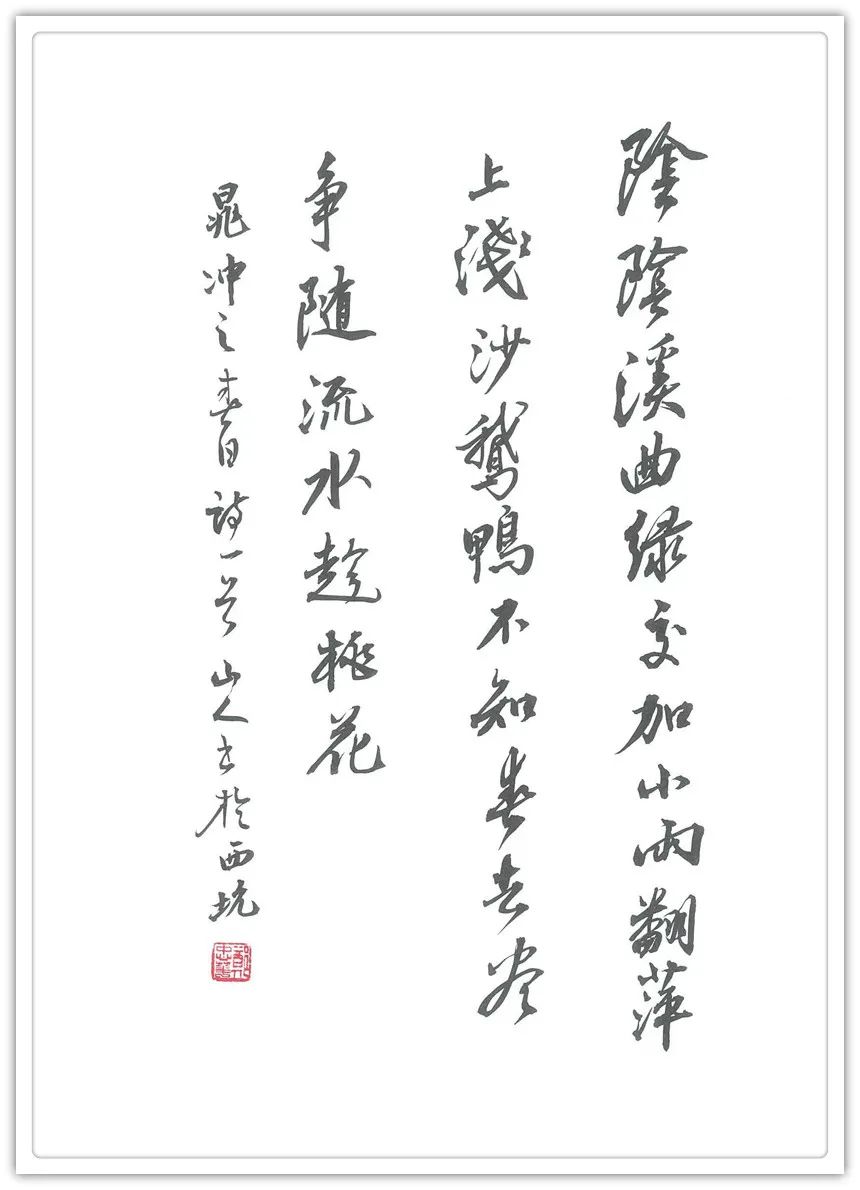 陰陰溪曲緑交加小雨翻萍
上淺沙鵝鴨不知春去尽
争随流水趁桃花
晁冲之春日詩一首山人书於西坑